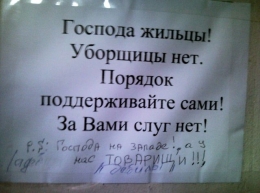 Господа жильцы!
Уборщицы нет.
Порядок
поддерживайте сами!
За Вами слуг нет!
Господа на западе!, а у
нас ТОВАРИЩИ!!!